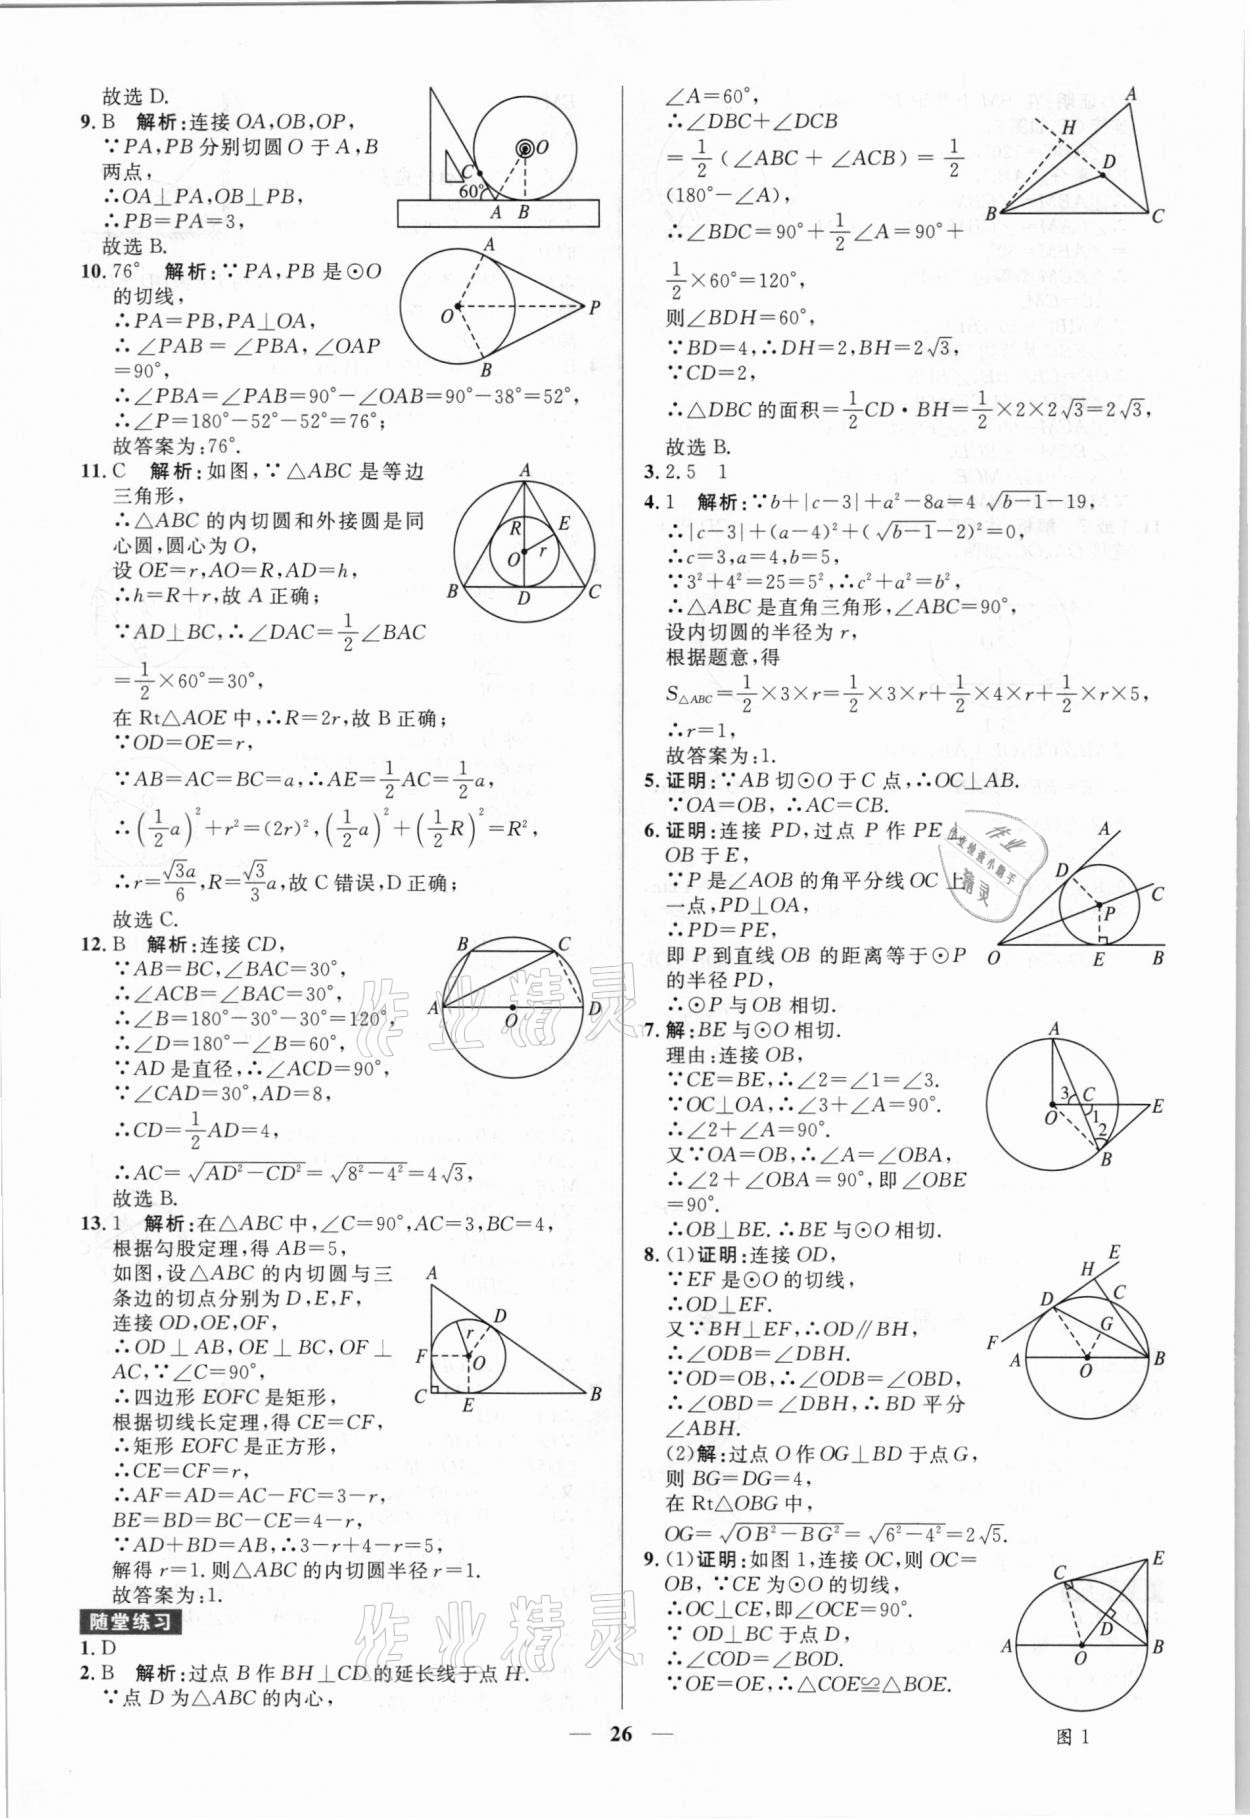 故选D.
9. B　解析:连接OA,OB,OP,
∵PA,PB分别切圆O于A,B
两点,
∴OA⊥PA,OB⊥PB,
∴PB=PA=3,
故选B.
C
O
60°
A
B
10. 76°　解析:∵PA,PB是⊙O
的切线,
∴PA=PB,PA⊥OA,
∴∠PAB=∠PBA,∠OAP
=90°,
∴∠PBA=∠PAB=90°-∠OAB=90°-38°=52°,
∴∠P=180°-52°-52°=76°;
故答案为:76°.
A
O
P
B
11. C　解析:如图,∵△ABC是等边
三角形,
∴△ABC的内切圆和外接圆是同
心圆,圆心为O,
设OE=r,AO=R,AD=h,
∴h=R+r,故A正确;
∵AD⊥BC,∴∠DAC=1/2∠BAC
=1/2×60°=30°,
在Rt△AOE中,∴R=2r,故B正确;
∵OD=OE=r,
∵AB=AC=BC=a,∴AE=1/2AC=1/2a,
∴(1/2a)²+r²=(2r)²,(1/2a)²+(1/2R)²=R²,
∴r=√3a/6,R=√3/3a,故C错误,D正确;
故选C.
A
R
E
O
r
B
D
C
12. B　解析:连接CD,
∵AB=BC,∠BAC=30°,
∴∠ACB=∠BAC=30°,
∴∠B=180°-30°-30°=120°,
∴∠D=180°-∠B=60°,
∵AD是直径,∴∠ACD=90°,
∵∠CAD=30°,AD=8,
∴CD=1/2AD=4,
∴AC=√(AD²-CD²)=√(8²-4²)=4√3,
故选B.
B
C
A
O
D
13. 1　解析:在△ABC中,∠C=90°,AC=3,BC=4,
根据勾股定理,得AB=5,
如图,设△ABC的内切圆与三
条边的切点分别为D,E,F,
连接OD,OE,OF,
∴OD⊥AB,OE⊥BC,OF⊥
AC,∵∠C=90°,
∴四边形EOFC是矩形,
根据切线长定理,得CE=CF,
∴矩形EOFC是正方形,
∴CE=CF=r,
∴AF=AD=AC-FC=3-r,
BE=BD=BC-CE=4-r,
∵AD+BD=AB,∴3-r+4-r=5,
解得r=1.则△ABC的内切圆半径r=1.
故答案为:1.
A
D
r
F
O
C
E
B
随堂练习
1. D
2. B　解析:过点B作BH⊥CD的延长线于点H.
∵点D为△ABC的内心,
∠A=60°,
∴∠DBC+∠DCB
=1/2(∠ABC+∠ACB)=1/2
(180°-∠A),
∴∠BDC=90°+1/2∠A=90°+
1/2×60°=120°,
则∠BDH=60°,
∵BD=4,∴DH=2,BH=2√3,
∵CD=2,
∴△DBC的面积=1/2CD·BH=1/2×2×2√3=2√3,
故选B.
A
H
D
B
C
3. 2.5　1
4. 1　解析:∵b+|c-3|+a²-8a=4√(b-1)-19,
∴|c-3|+(a-4)²+(√(b-1)-2)²=0,
∴c=3,a=4,b=5,
∵3²+4²=25=5²,∴c²+a²=b²,
∴△ABC是直角三角形,∠ABC=90°,
设内切圆的半径为r,
根据题意,得
S△ABC=1/2×3×r=1/2×3×r+1/2×4×r+1/2×r×5,
∴r=1,
故答案为:1.
5. 证明:∵AB切⊙O于C点,∴OC⊥AB.
∵OA=OB,∴AC=CB.
6. 证明:连接PD,过点P作PE⊥
OB于E,
∵P是∠AOB的角平分线OC上
一点,PD⊥OA,
∴PD=PE,
即P到直线OB的距离等于⊙P
的半径PD,
∴⊙P与OB相切.
A
D
C
P
O
E
B
7. 解:BE与⊙O相切.
理由:连接OB,
∵CE=BE,∴∠2=∠1=∠3.
∵OC⊥OA,∴∠3+∠A=90°.
∴∠2+∠A=90°.
又∵OA=OB,∴∠A=∠OBA,
∴∠2+∠OBA=90°,即∠OBE
=90°.
∴OB⊥BE.∴BE与⊙O相切.
A
3
C
O
1
E
2
B
8. (1)证明:连接OD,
∵EF是⊙O的切线,
∴OD⊥EF.
又∵BH⊥EF,∴OD∥BH,
∴∠ODB=∠DBH.
∵OD=OB,∴∠ODB=∠OBD,
∴∠OBD=∠DBH,∴BD平分
∠ABH.
(2)解:过点O作OG⊥BD于点G,
则BG=DG=4,
在Rt△OBG中,
OG=√(OB²-BG²)=√(6²-4²)=2√5.
E
H
D
C
G
F
A
O
B
9. (1)证明:如图1,连接OC,则OC=
OB,∵CE为⊙O的切线,
∴OC⊥CE,即∠OCE=90°.
∵OD⊥BC于点D,
∴∠COD=∠BOD.
∵OE=OE,∴△COE≌△BOE.
E
C
D
A
O
B
图1
— 26 —
作业精灵
作业精灵
作业
作业检查小助手
精灵